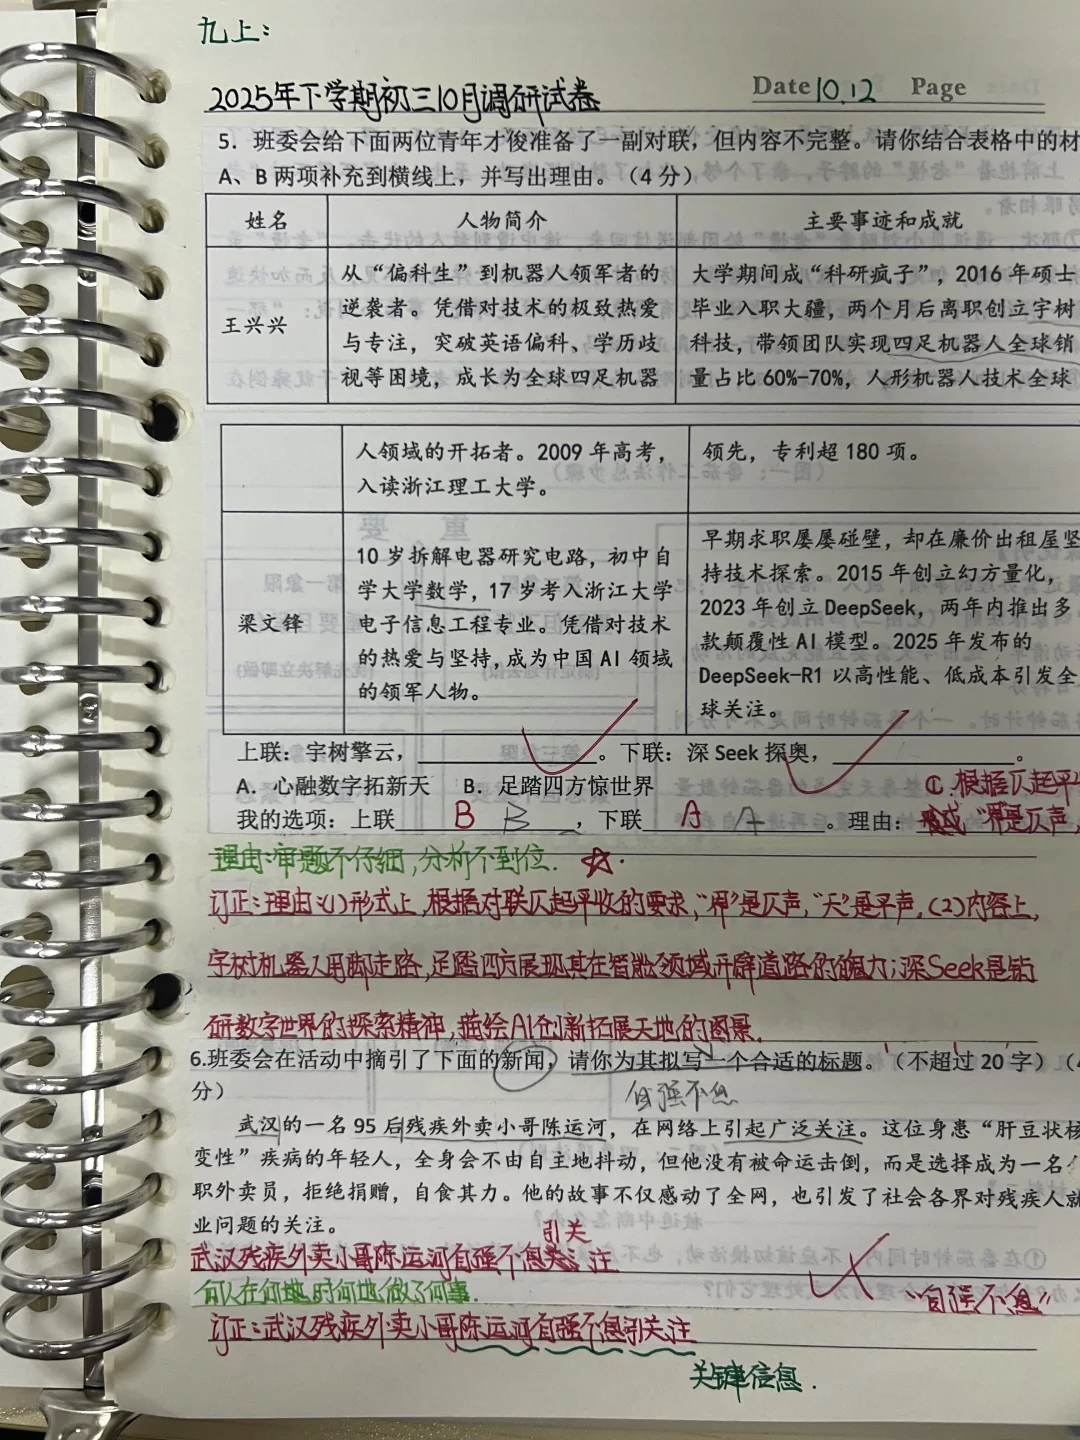 九上:
2025年下学期初三10月调研试卷 Date 10.12 Page
5．班委会给下面两位青年才俊准备了一副对联，但内容不完整。请你结合表格中的材
A、B两项补充到横线上，并写出理由。（4分）
姓名 人物简介 主要事迹和成就
王兴兴
从“偏科生”到机器人领军者的
逆袭者。凭借对技术的极致热爱
与专注，突破英语偏科、学历歧
视等困境，成长为全球四足机器
大学期间成“科研疯子”，2016年硕士
毕业入职大疆，两个月后离职创立宇树
科技，带领团队实现四足机器人全球销
量占比60%-70%，人形机器人技术全球
人领域的开拓者。2009年高考，
入读浙江理工大学。
领先，专利超180项。
梁文锋
10岁拆解电器研究电路，初中自
学大学数学，17岁考入浙江大学
电子信息工程专业。凭借对技术
的热爱与坚持，成为中国AI领域
的领军人物。
早期求职屡屡碰壁，却在廉价出租屋坚
持技术探索。2015年创立幻方量化，
2023年创立DeepSeek，两年内推出多
款颠覆性AI模型。2025年发布的
DeepSeek-R1以高性能、低成本引发全
球关注。
上联：宇树擎云，。下联：深Seek探奥，。
A．心融数字拓新天 B．足踏四方惊世界
根据仄起平
我的选项：上联 B B ，下联 A A 。理由： 界是仄声,
理由:审题不仔细,分析不到位. ☆.
订正:理由:(1)形式上,根据对联仄起平收的要求,“界”是仄声,“天”是平声,(2)内容上,
宇树机器人用脚走路,足踏四方展现其在智能领域开辟道路的魄力;深Seek是钻
研数字世界的探索精神,描绘AI创新拓展天地的图景.
6.班委会在活动中摘引了下面的新闻，请你为其拟写一个合适的标题。（不超过20字）（4
分）
自强不息
武汉的一名95后残疾外卖小哥陈运河，在网络上引起广泛关注。这位身患“肝豆状核
变性”疾病的年轻人，全身会不由自主地抖动，但他没有被命运击倒，而是选择成为一名
职外卖员，拒绝捐赠，自食其力。他的故事不仅感动了全网，也引发了社会各界对残疾人就
业问题的关注。
引关
武汉残疾外卖小哥陈运河自强不息 注
何人在何地,时何地,做了何事.
“自强不息”
订正:武汉残疾外卖小哥陈运河自强不息引关注
关键信息.